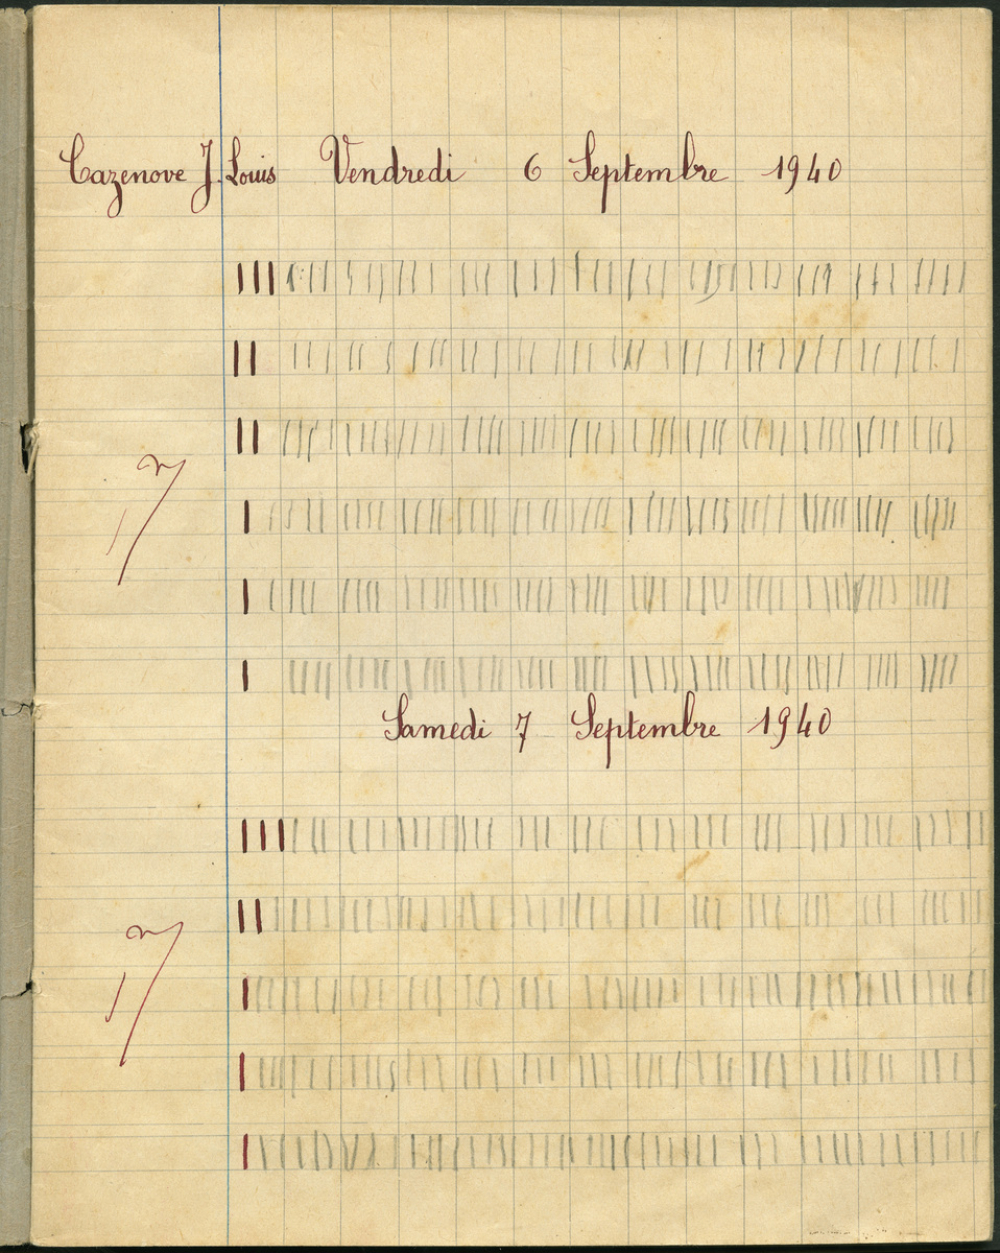 Cazenove J. Louis Vendredi 6 Septembre 1940
Samedi 7 Septembre 1940